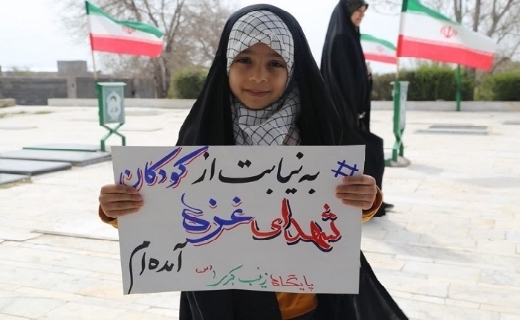 # به نیابت از کودکان
شهدای غزه
آمده ام
پایگاه زینب کبری (س)